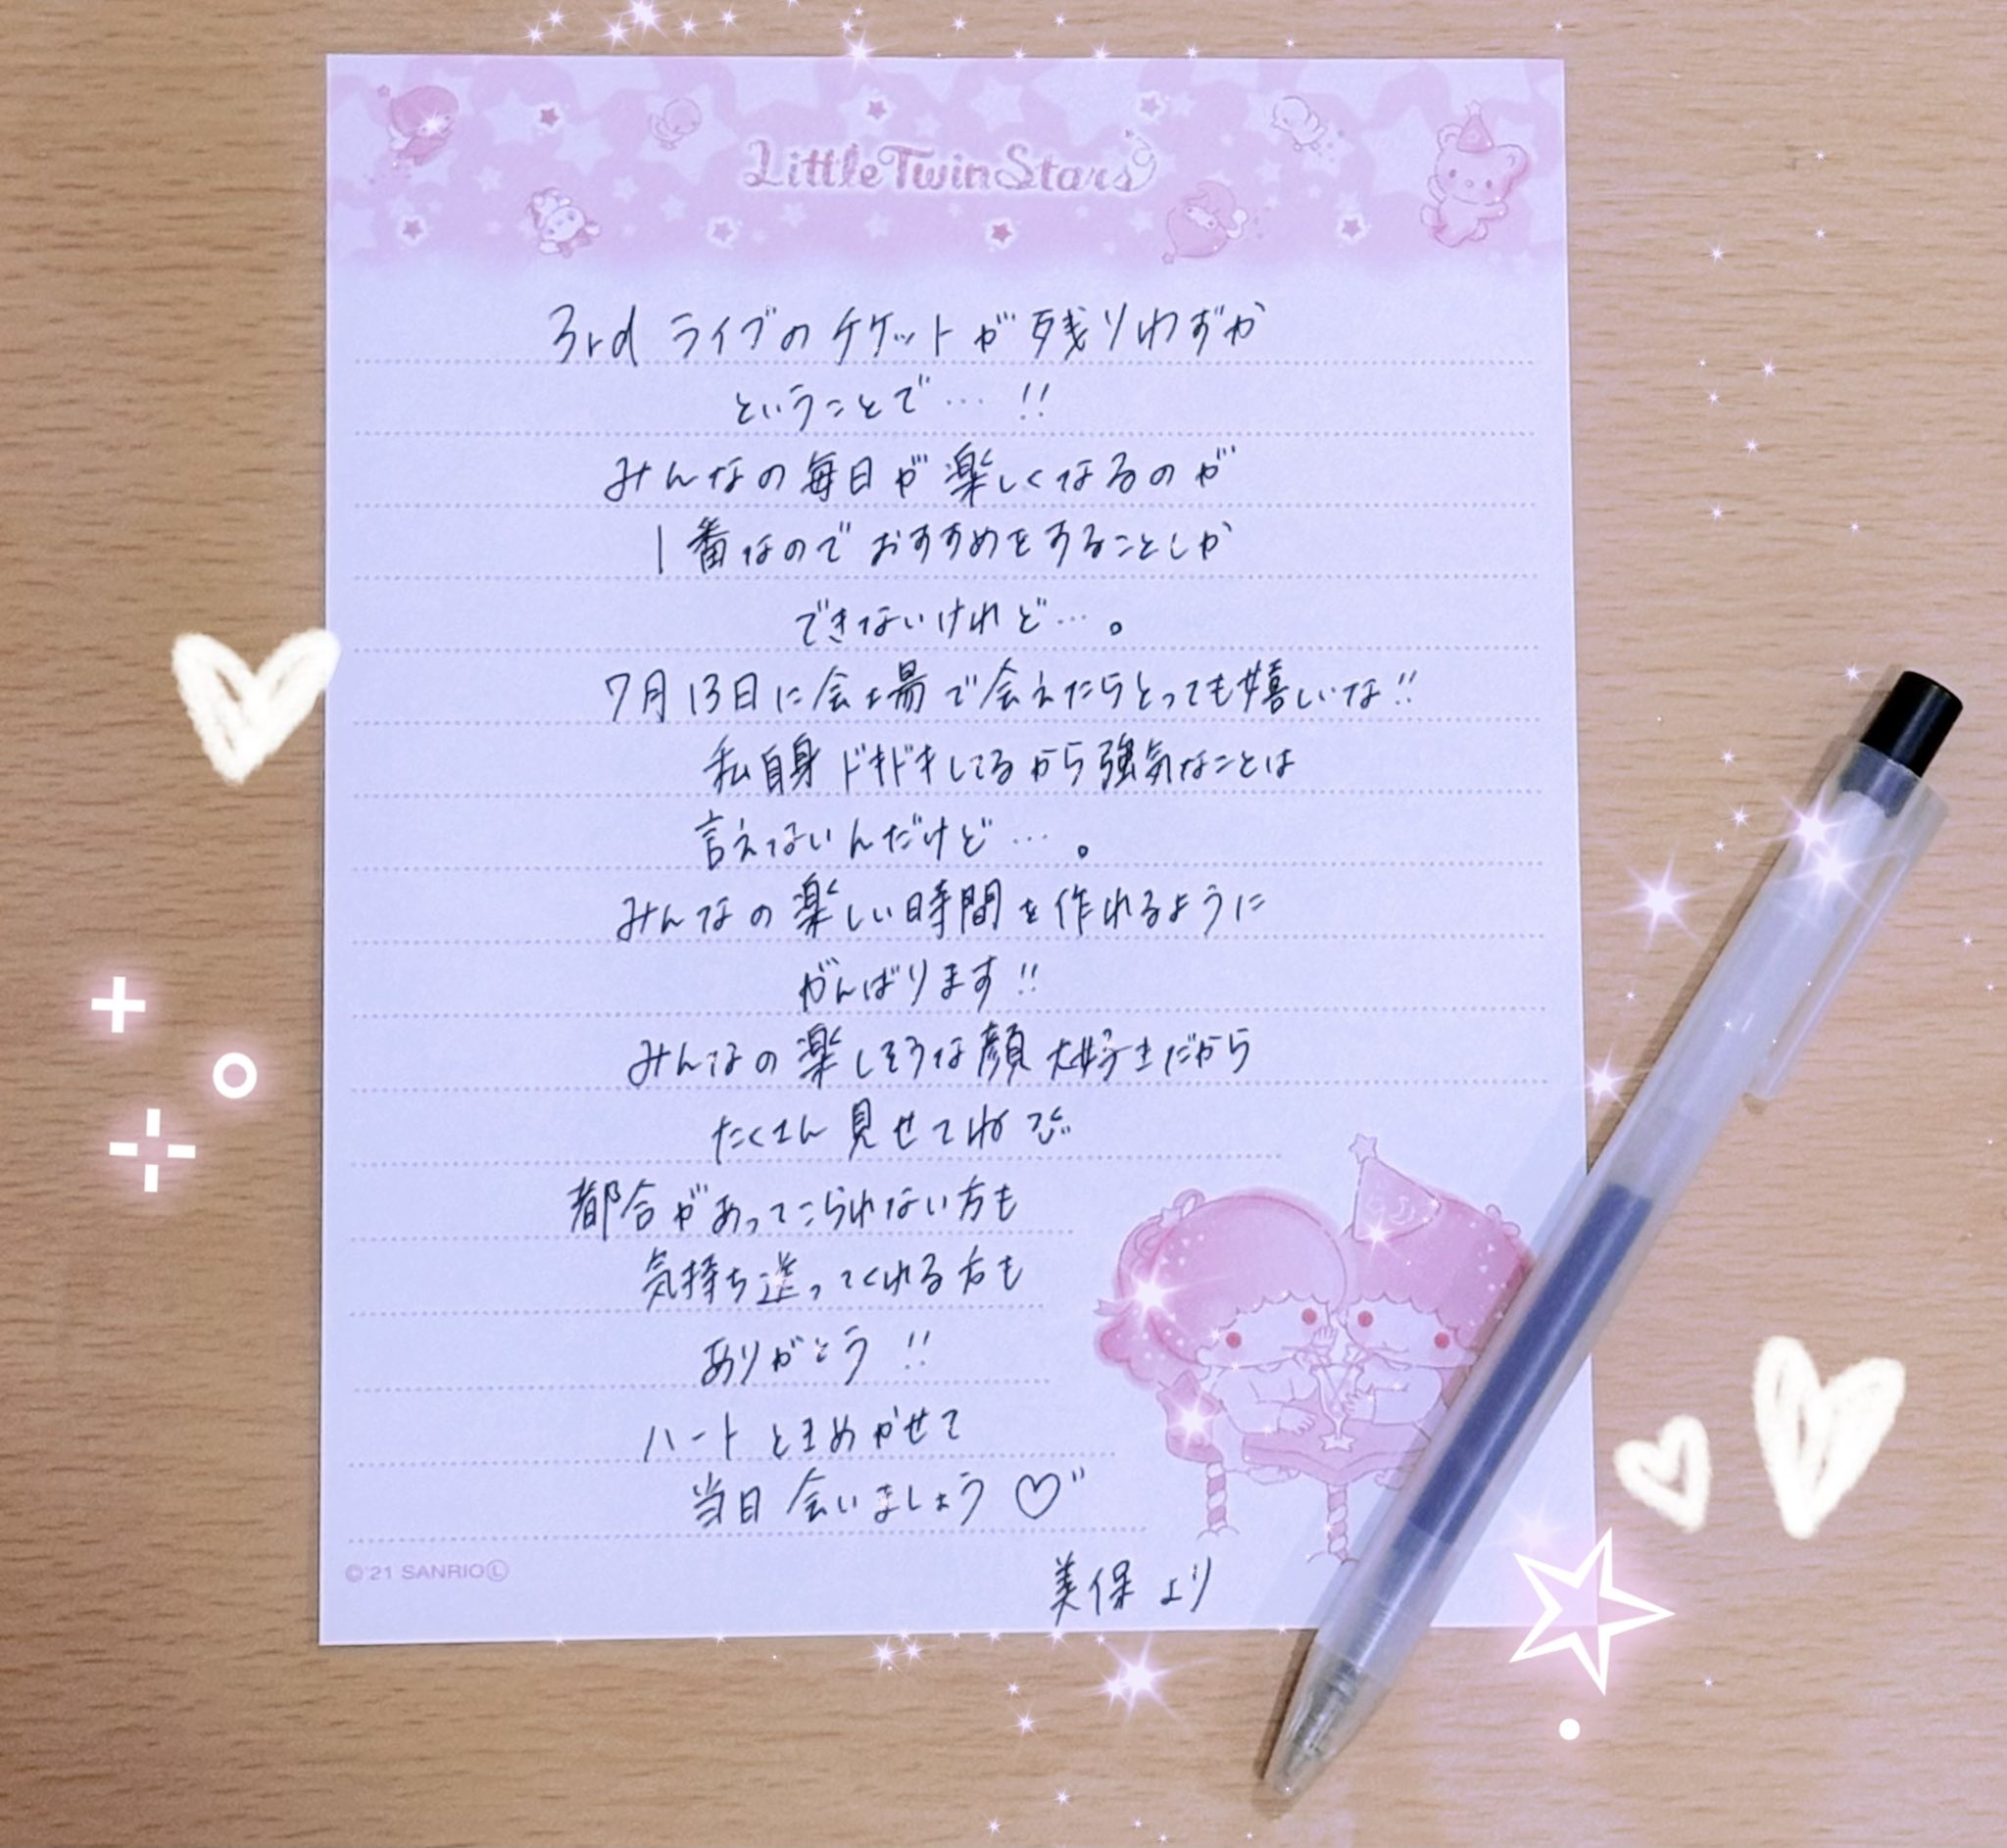 Little Twin Stars
3rd ライブのチケットが残りわずか
ということで…!!
みんなの毎日が楽しくなるのが
1番なのでおすすめをすることしか
できないけれど…。
7月13日に会場で会えたらとっても嬉しいな!!
私自身ドキドキしてるから強気なことは
言えないんだけど…。
みんなの楽しい時間を作れるように
がんばります!!
みんなの楽しそうな顔大好きだから
たくさん見せてね
都合があってこられない方も
気持ち送ってくれる方も
ありがとう!!
ハートときめかせて
当日会いましょう♡"
©'21 SANRIO Ⓛ
美保より